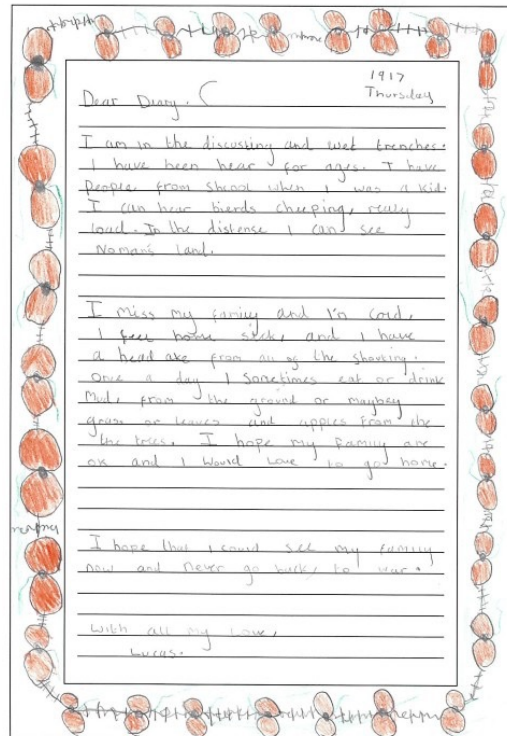 1917
Thursday
Dear Diary.
I am in the discusting and wet trenches.
I have been hear for ages. I have
people from shcool when I was a kid.
I can hear bierds cheeping, realy
load. In the distense I can see
Noman's land.
I miss my family and I'm cold,
I feel home sick, and I have
a head ake from all of the shouting.
Once a day I sometimes eat or drink
mud, from the ground or maybey
grass or leaves and apples from the
the trees. I hope my family are
ok and I would love to go home.
I hope that I could see my family
now and never go back, to war.
With all my love,
Lucas.